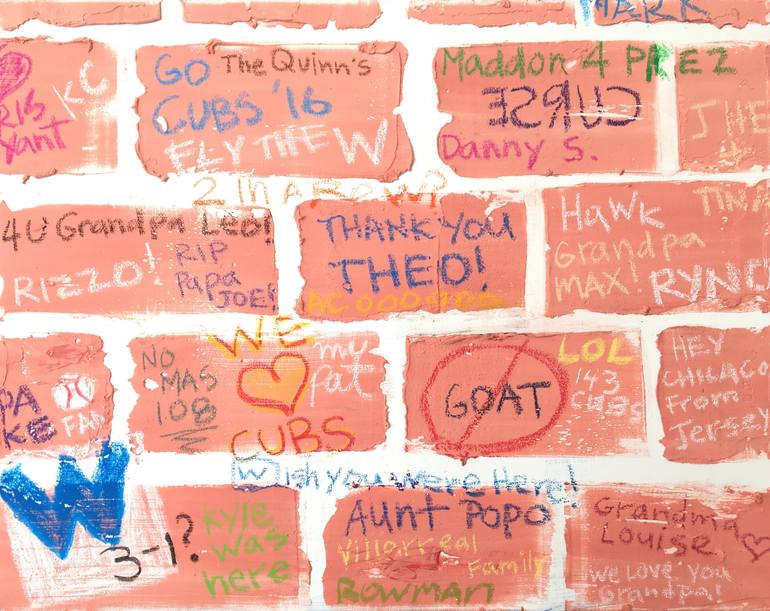 MARK
KC
GO The Quinn's
CUBS '16
FLY THE W
Maddon 4 PREZ
CURSE
Danny S.
2 In A ROW?
4U Grandpa Leo!
RIZZO!
RIP
Papa
JOE!
THANK YOU
THEO!
HaWK
Grandpa
MAX!
WE
CUBS
NO
MAS
108
my
pat
GOAT
LOL
143
CUBS
HEY
CHICAGO
From
Jersey
Wish you were Here!
W
3-1?
Kyle
was
here
Aunt Popo
Villarreal
Family
BOWMAN
Grandma
Louise
We Love You
Grandpa!